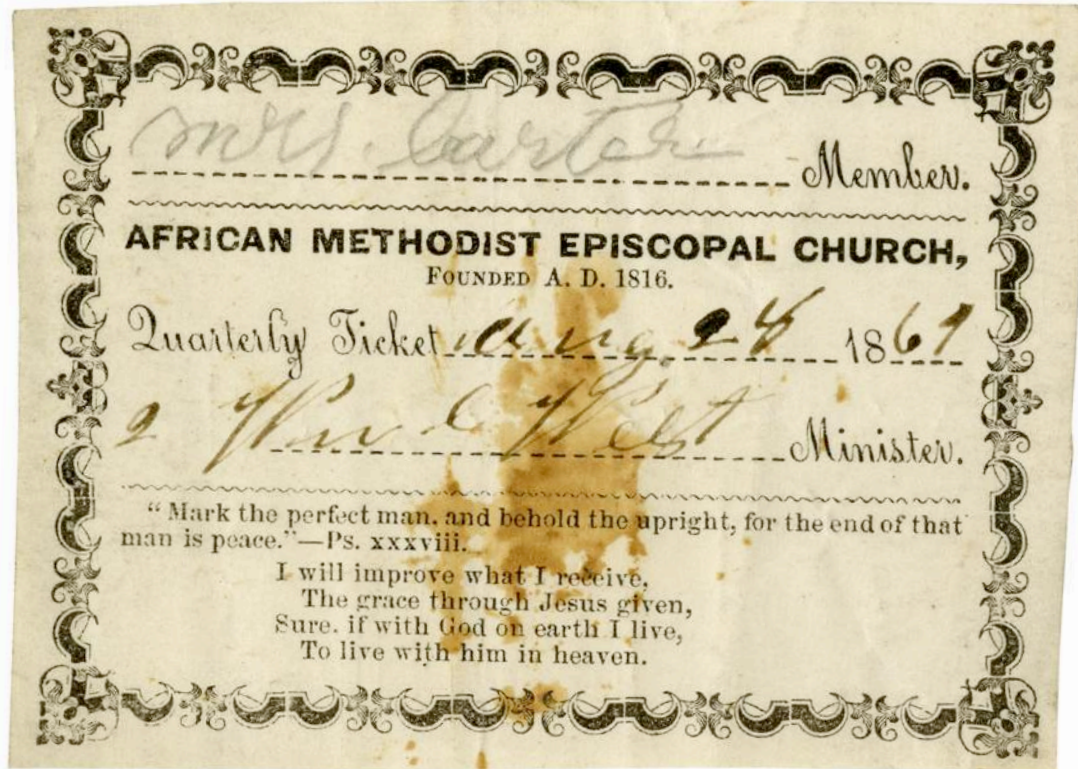 Mrs. Carter Member.
AFRICAN METHODIST EPISCOPAL CHURCH,
FOUNDED A. D. 1816.
Quarterly Ticket Aug 28 1869
Wm C West Minister.
"Mark the perfect man, and behold the upright, for the end of that
man is peace."—Ps. xxxviii.
I will improve what I receive,
The grace through Jesus given,
Sure, if with God on earth I live,
To live with him in heaven.